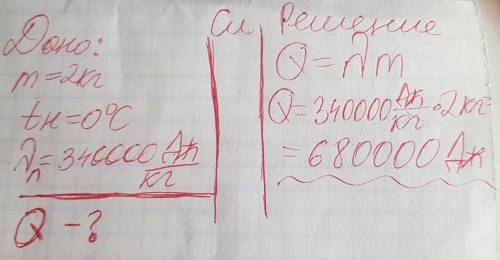 Дано:
m=2кг
tн=0°C
λл=340000 Дж/кг
Q-?
Си
Решение
Q=λm
Q=340000 Дж/кг·2кг=
=680000 Дж